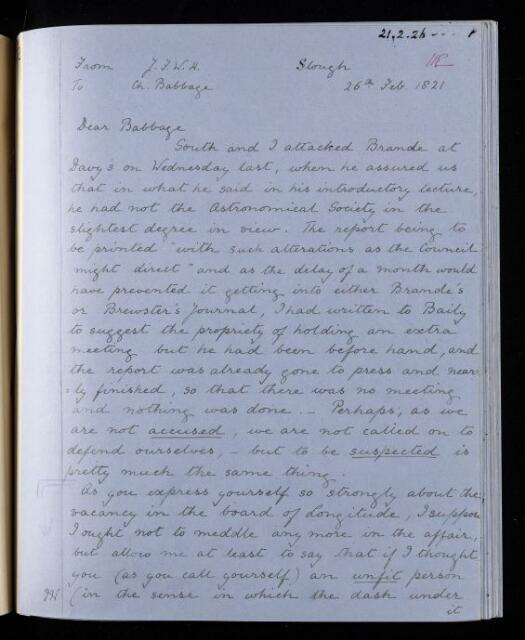 21.2.26 --- 1
From J.F.W.H. Slough
To Ch. Babbage 26th Feb. 1821
Dear Babbage
South and I attacked Brande at
Davy's on Wednesday last, when he assured us
that in what he said in his introductory lecture,
he had not the Astronomical Society in the
slightest degree in view. The report being to
be printed "with such alterations as the Council
might direct" and as the delay of a month would
have prevented it getting into either Brande's
or Brewster's Journal, I had written to Baily
to suggest the propriety of holding an extra
meeting but he had been before hand, and
the report was already gone to press and near-
=ly finished, so that there was no meeting
and nothing was done. — Perhaps, as we
are not accused, we are not called on to
defend ourselves, — but to be suspected is
pretty much the same thing.
As you express yourself so strongly about the
vacancy in the board of Longitude, I suppose
I ought not to meddle any more in the affair,
but allow me at least to say that if I thought
you (as you call yourself) an unfit person
(in the sense in which the dash under
it